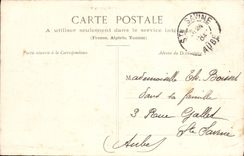 CARTE POSTALE
A utiliser seulement dans le service int
(France, Algérie, Tunisie)
Partie réservée à la Correspondance
Adresse du D
SAVINE
AUBE
Mademoiselle Ch. Boisset
dans la famille
3 Rue Gallet
Ste Savine
(Aube)